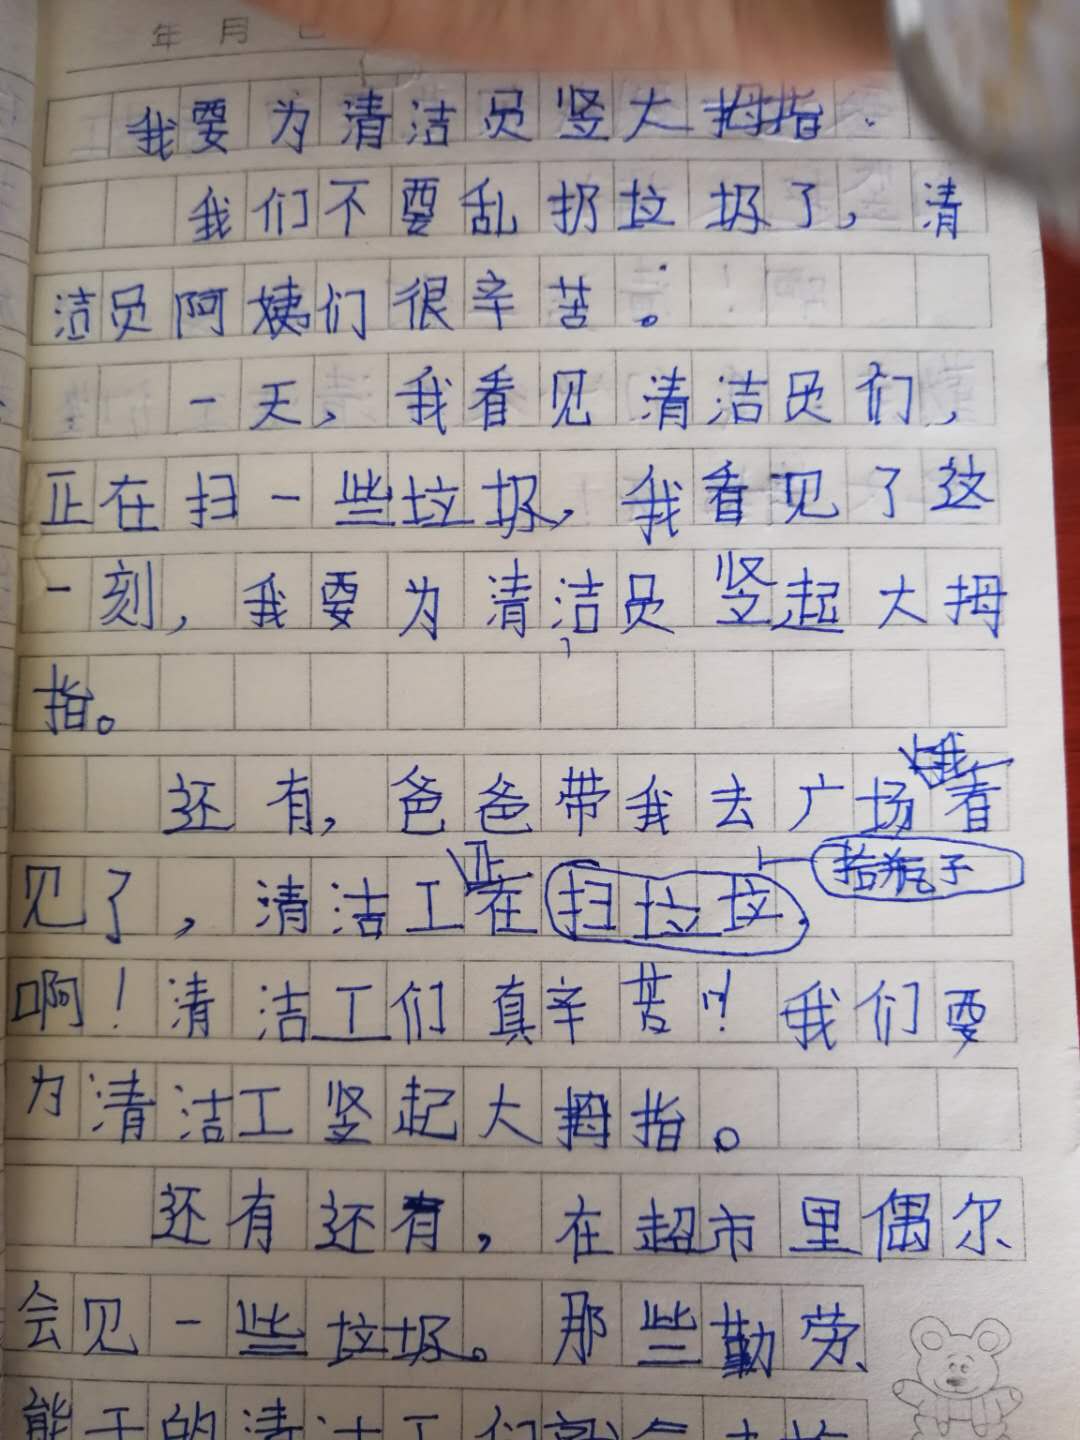 年 月
我要为清洁员竖大拇指
我们不要乱扔垃圾了，清
洁员阿姨们很辛苦。
一天，我看见清洁员们，
正在扫一些垃圾，我看见了这
一刻，我要为清洁员竖起大拇
指。
我
还有，爸爸带我去广场看
正 拾瓶子
见了，清洁工在扫垃圾。
啊！清洁工们真辛苦！我们要
为清洁工竖起大拇指。
还有还有，在超市里偶尔
会见一些垃圾。那些勤劳、
能干的清洁工们就会